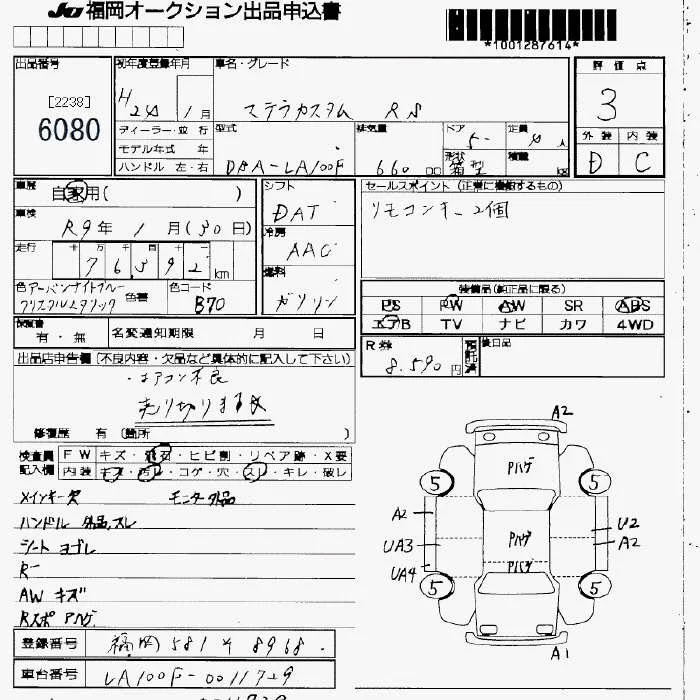 JU 福岡オークション出品申込書
*1001287614*
出品番号
[2238]
6080
初年度登録年月
H 24 1月
車名・グレード
ステラカスタム RS
評価点
3
外装 内装
D C
ディーラー・並行
モデル年式 年
ハンドル 左・右
型式
DBA-LA100F
排気量
660 cc
ドア
5
定員
4人
形状
箱型
積載
kg
車歴
自家用( )
車検
R9年 1月(30日)
走行
十 万 千 百 十
76392 km
色 アーバンナイトブルー
クリスタルメタリック
色替
色コード
B70
シフト
DAT
冷房
AAC
燃料
ガソリン
セールスポイント (正常に機能するもの)
リモコンキー2個
装備品(純正品に限る)
PS PW AW SR ABS
エアB TV ナビ カワ 4WD
保証書
有・無
名変通知期限 月 日
R券
8.590円
預託済
後日品
出品店申告欄 (不良内容・欠品など具体的に記入して下さい)
・エアコン不良
売り切ります
修復歴 有 (箇所 )
検査員記入欄
FW キズ・飛石・ヒビ割・リペア跡・X要
内装 キズ・汚レ・コゲ・穴・スレ・キレ・破レ
メインキー欠 モニター外品
ハンドル 外品、スレ
シート ヨゴレ
R一
AW キズ
Rスポ Aハゲ
登録番号
福岡 581 ス 8968
車台番号
LA100F-0011729
A2
Pハゲ
5 5
A2
U2
Pハゲ
UA3
A2
Pハゲ
UA4
5 5
A1